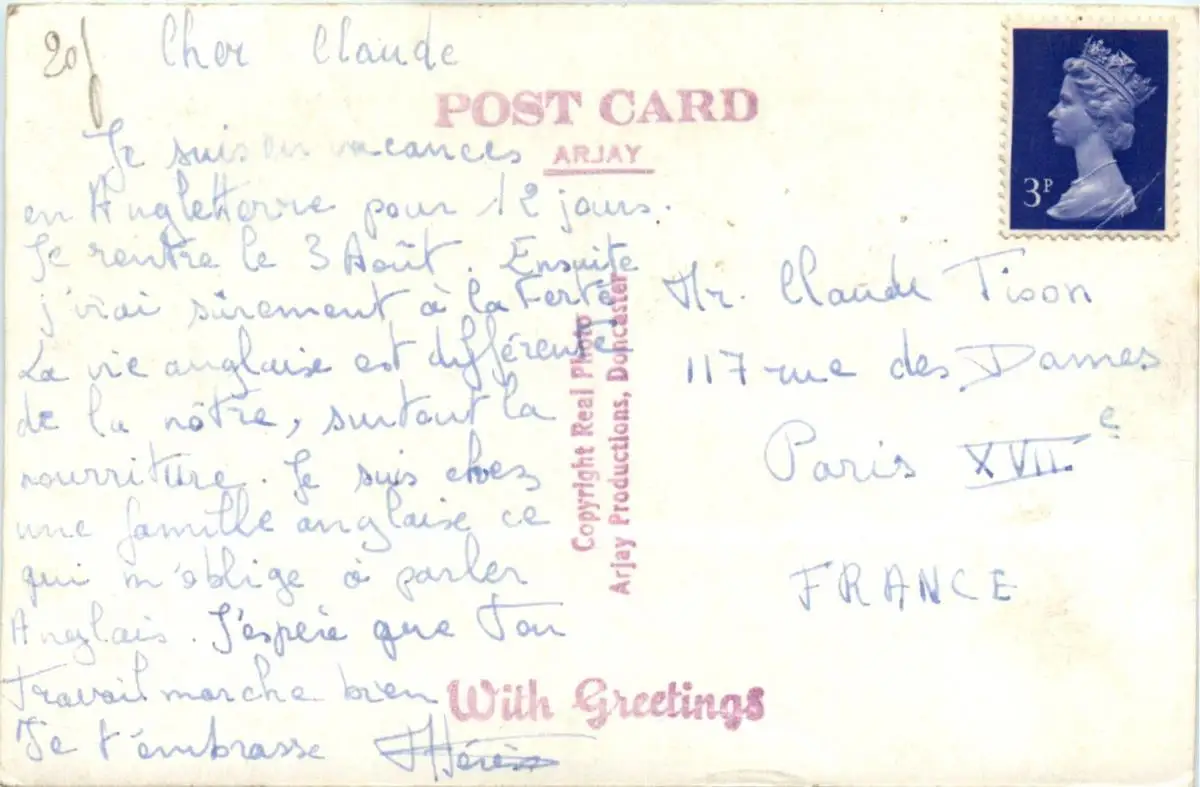 20f
Cher Claude
POST CARD
ARJAY
Je suis en vacances
en Angleterre pour 12 jours.
Je rentre le 3 Août. Ensuite
j'irai sûrement à la Ferté
La vie anglaise est différente
de la nôtre, surtout la
nourriture. Je suis chez
une famille anglaise ce
qui m'oblige à parler
Anglais. J'espère que ton
travail marche bien
Je t'embrasse
With Greetings
Copyright Real Photo
Arjay Productions, Doncaster
3P
Mr. Claude Tison
117 rue des Dames
Paris XVIIe
FRANCE